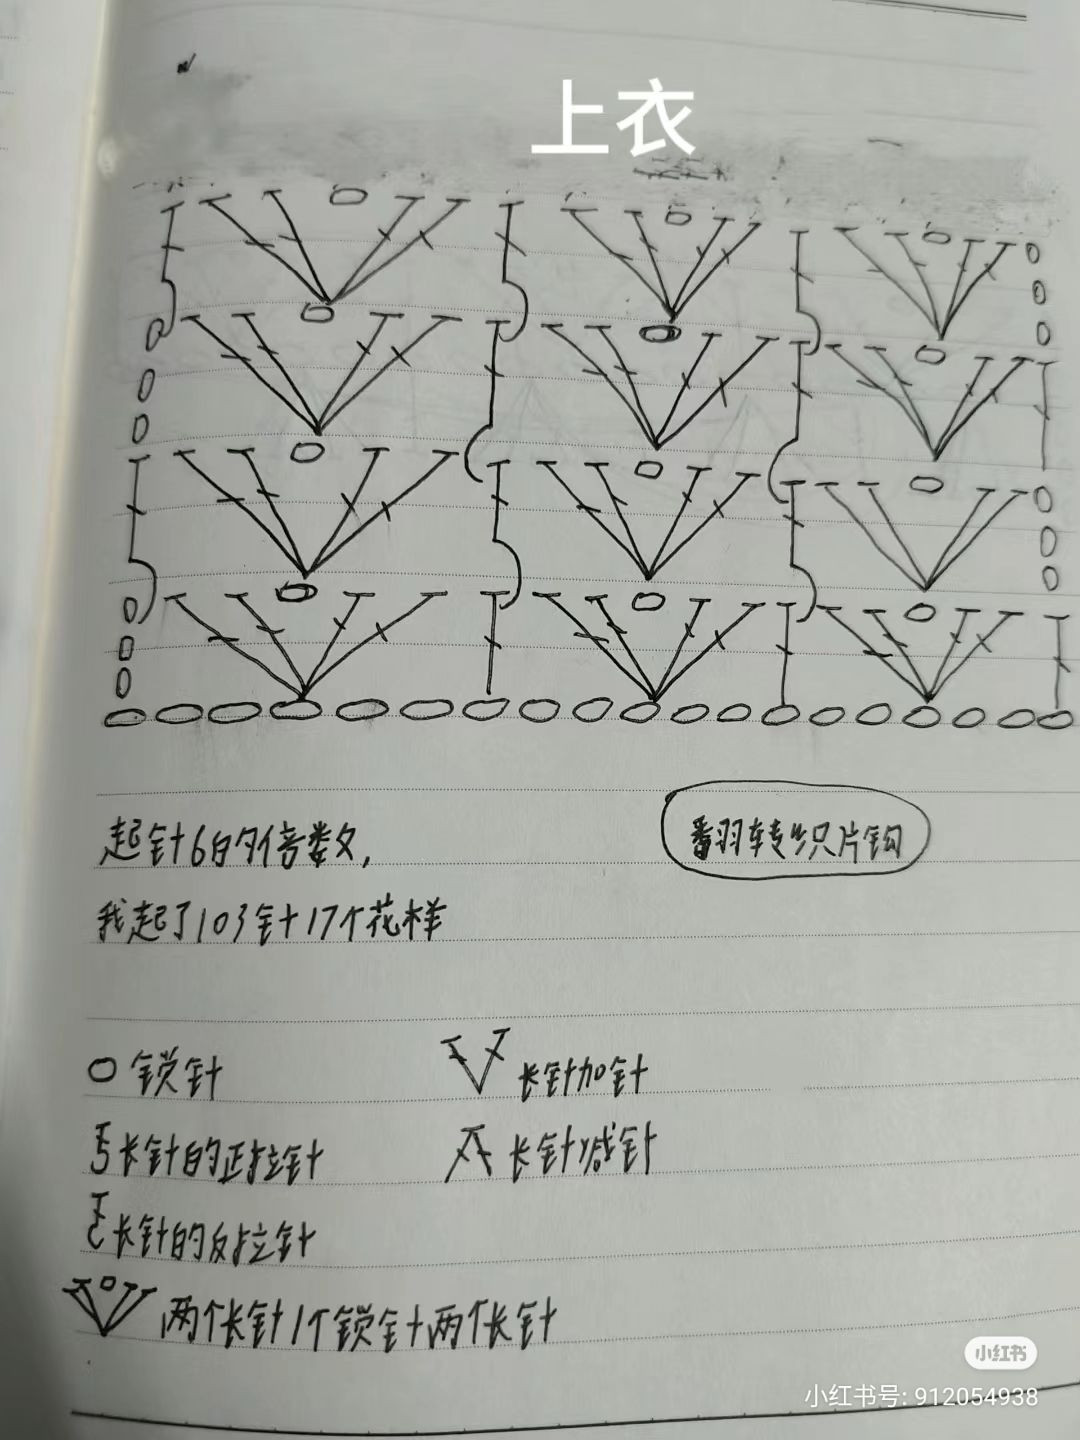 上衣
起针6的倍数,
翻转织片钩
我起了103针17个花样
锁针
长针加针
长针的正拉针
长针减针
长针的反拉针
两个长针1个锁针两个长针
小红书
小红书号: 912054938